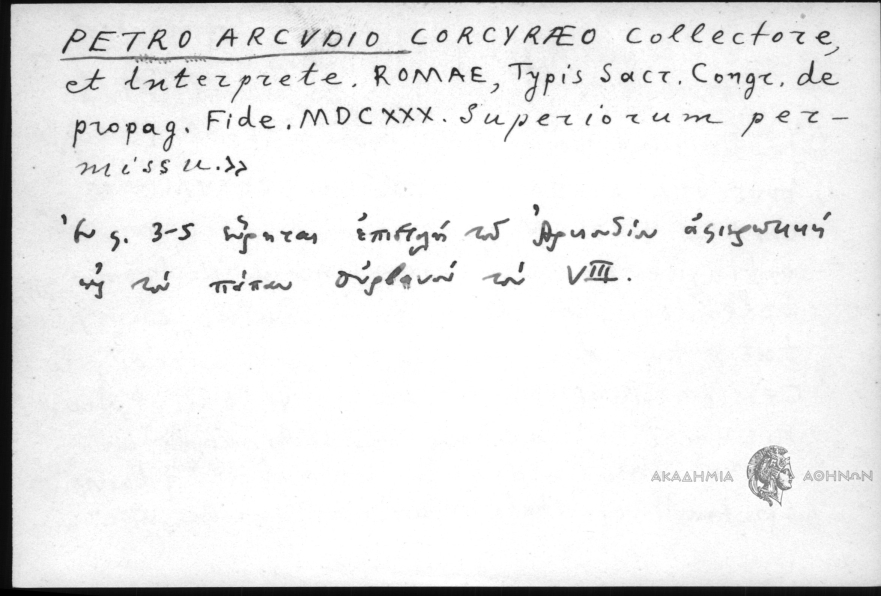 PETRO ARCVDIO CORCYRÆO Collectore,
et Interprete. ROMAE, Typis Sacr. Congr. de
propag. Fide. MDCXXX. Superiorum per-
missu.»
Ἐν σ. 3-5 εὕρηται ἐπιστολή τοῦ Ἀρκουδίου ἀφιερωτική
εἰς τόν πάπαν Οὐρβανόν τόν VIII.
ΑΚΑΔΗΜΙΑ ΑΘΗΝΩΝ